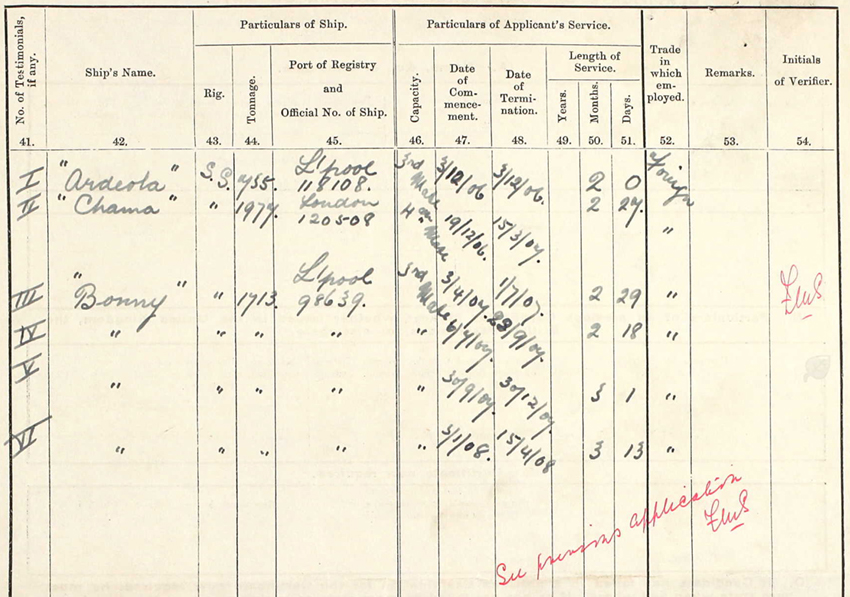 Particulars of Ship. Particulars of Applicant's Service.
No. of Testimonials, if any. Ship's Name. Rig. Tonnage. Port of Registry and Official No. of Ship. Capacity. Date of Commencement. Date of Termination. Length of Service. Years. Months. Days. Trade in which employed. Remarks. Initials of Verifier.
41. 42. 43. 44. 45. 46. 47. 48. 49. 50. 51. 52. 53. 54.
I "Ardeola" S.S. L'pool 118108. 3rd Mate 3/12/06. 2 0 Foreign
II "Chama" " 1977. London 120508 4th Mate 19/12/06. 15/3/07. 2 27. "
III "Bonny" " 1713. L'pool 98639. 3rd Mate 3/4/07. 1/7/07. 2 29 "
IV " " " " " 6/7/07. 23/9/07. 2 18 "
V " " " " " 30/9/07. 30/12/07. 3 1 "
VI " " " " " 3/1/08. 15/4/08 3 13 "
See previous application